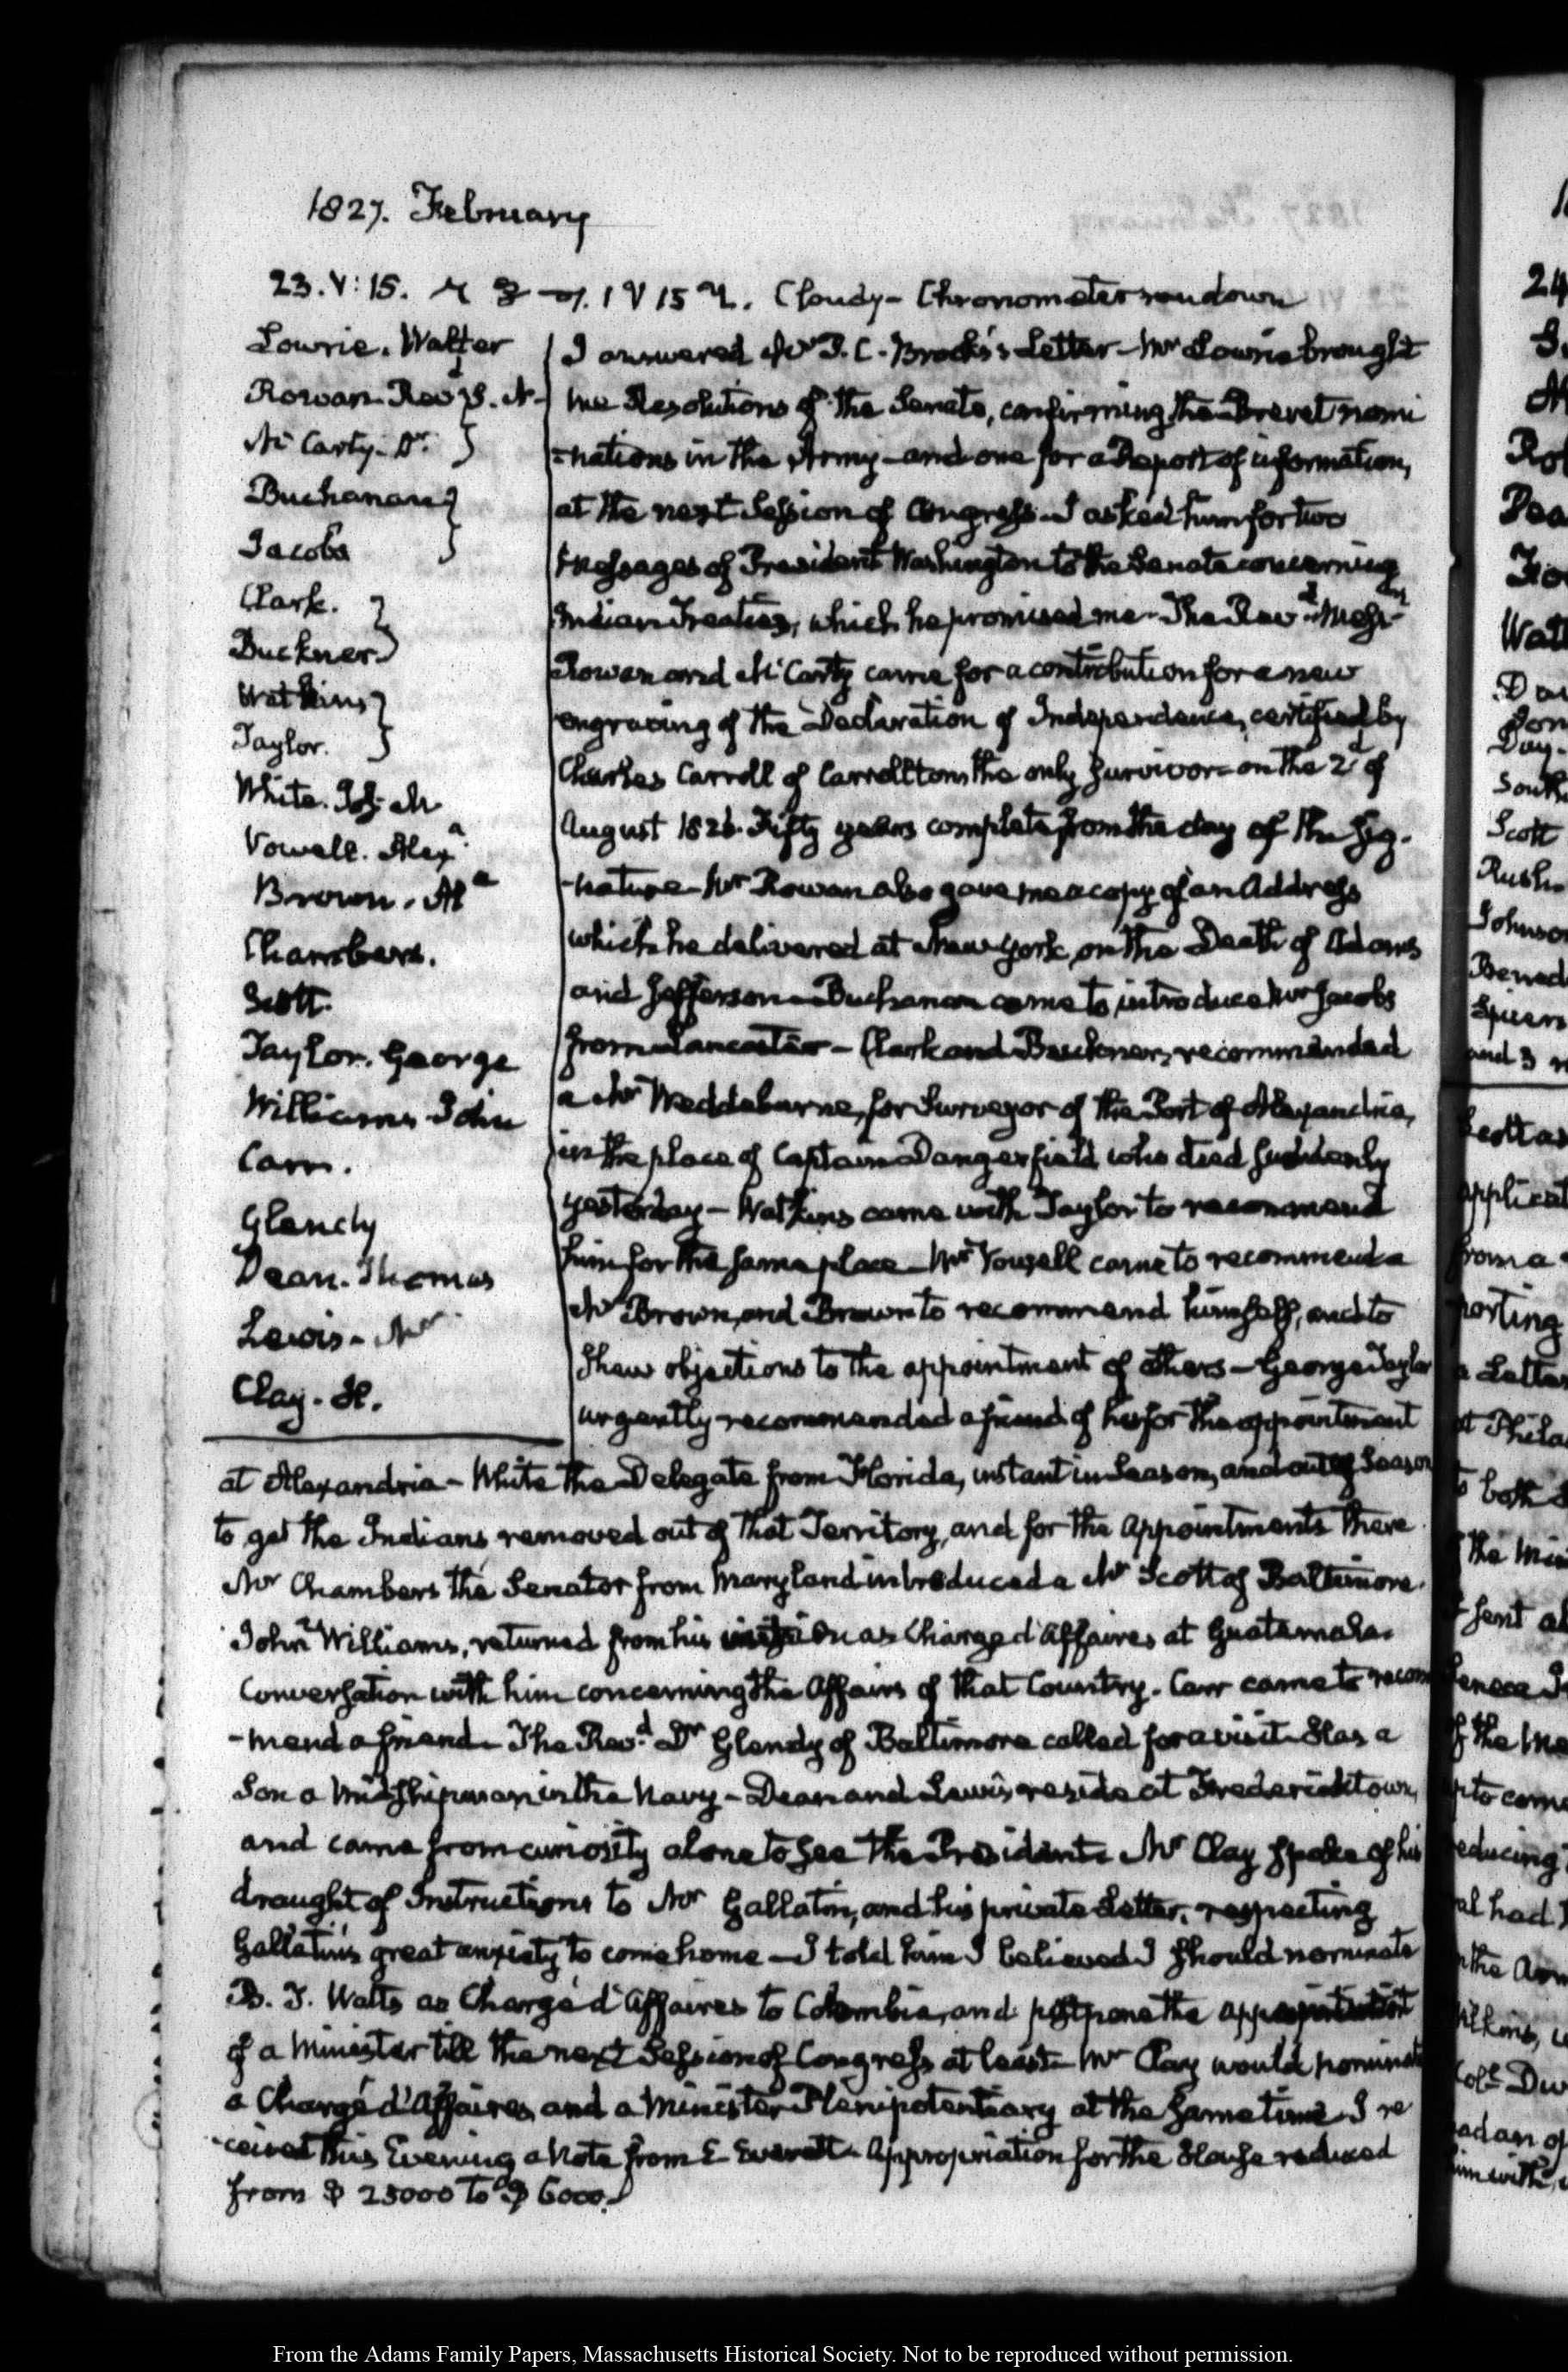 1827. February
23. V:15. 1 V 15 Cloudy - Chronometer run down
Lowrie. Walter
Rowan Revd S. N.
McCarty. Dr.
Buchanan
Jacobs
Clark.
Buckner
Watkins
Taylor.
White. Jos. M
Vowell. Alexa
Brown. Ma
Chambers.
Scott.
Taylor. George
Williams John
Carr.
Glendy
Dean. Thomas
Lewis - Mr
Clay. H.
I answered Mr T. C. Brocks's Letter - Mr Lowrie brought
me Resolutions of the Senate, confirming the Brevet nomi
-nations in the Army - and one for a Report of information,
at the next Session of Congress - I asked him for two
Messages of President Washington to the Senate concerning
Indian Treaties, which he promised me - The Revd Messrs
Rowan and McCarty came for a contribution for a new
engraving of the Declaration of Independence, certified by
Charles Carroll of Carrollton, the only survivor - on the 2d of
August 1826. Fifty years complete from the day of the sig-
-nature - Mr Rowan also gave me a copy of an Address
which he delivered at New York, on the Death of Adams
and Jefferson - Buchanan came to introduce Mr Jacobs
from Lancaster - Clark and Buckner, recommended
a Mr Weddeburne, for Surveyor of the Port of Alexandria,
in the place of Captain Dangerfield who died suddenly
yesterday - Watkins came with Taylor to recommend
him for the same place - Mr Vowell came to recommend a
Mr Brown, and Brown to recommend himself, and to
shew objections to the appointment of others - George Taylor
urgently recommended a friend of his for the appointment
at Alexandria - White the Delegate from Florida, instant in Season, and out of Season
to get the Indians removed out of that Territory, and for the Appointments there
Mr Chambers the Senator from Maryland introduced a Mr Scott of Baltimore.
John Williams, returned from his as Chargé d'Affaires at Guatemala.
Conversation with him concerning the Affairs of that Country. Carr came to recom
-mend a friend - The Revd Dr Glendy of Baltimore called for a visit - Has a
Son a Midshipman in the Navy - Dean and Lewis reside at Fredericktown,
and came from curiosity alone to see the President - Mr Clay spoke of his
draught of Instructions to Mr Gallatin, and his private Letter, respecting
Gallatin's great anxiety to come home - I told him I believed I should nominate
B. T. Watts as Chargé d'Affaires to Colombia, and postpone the appointment
of a Minister till the next Session of Congress at least - Mr Clay would nominate
a Chargé d'Affaires, and a Minister Plenipotentiary at the same time - I re
-ceived this Evening a Note from E Everett - Appropriation for the House reduced
from $ 25000 to $ 6000.
From the Adams Family Papers, Massachusetts Historical Society. Not to be reproduced without permission.